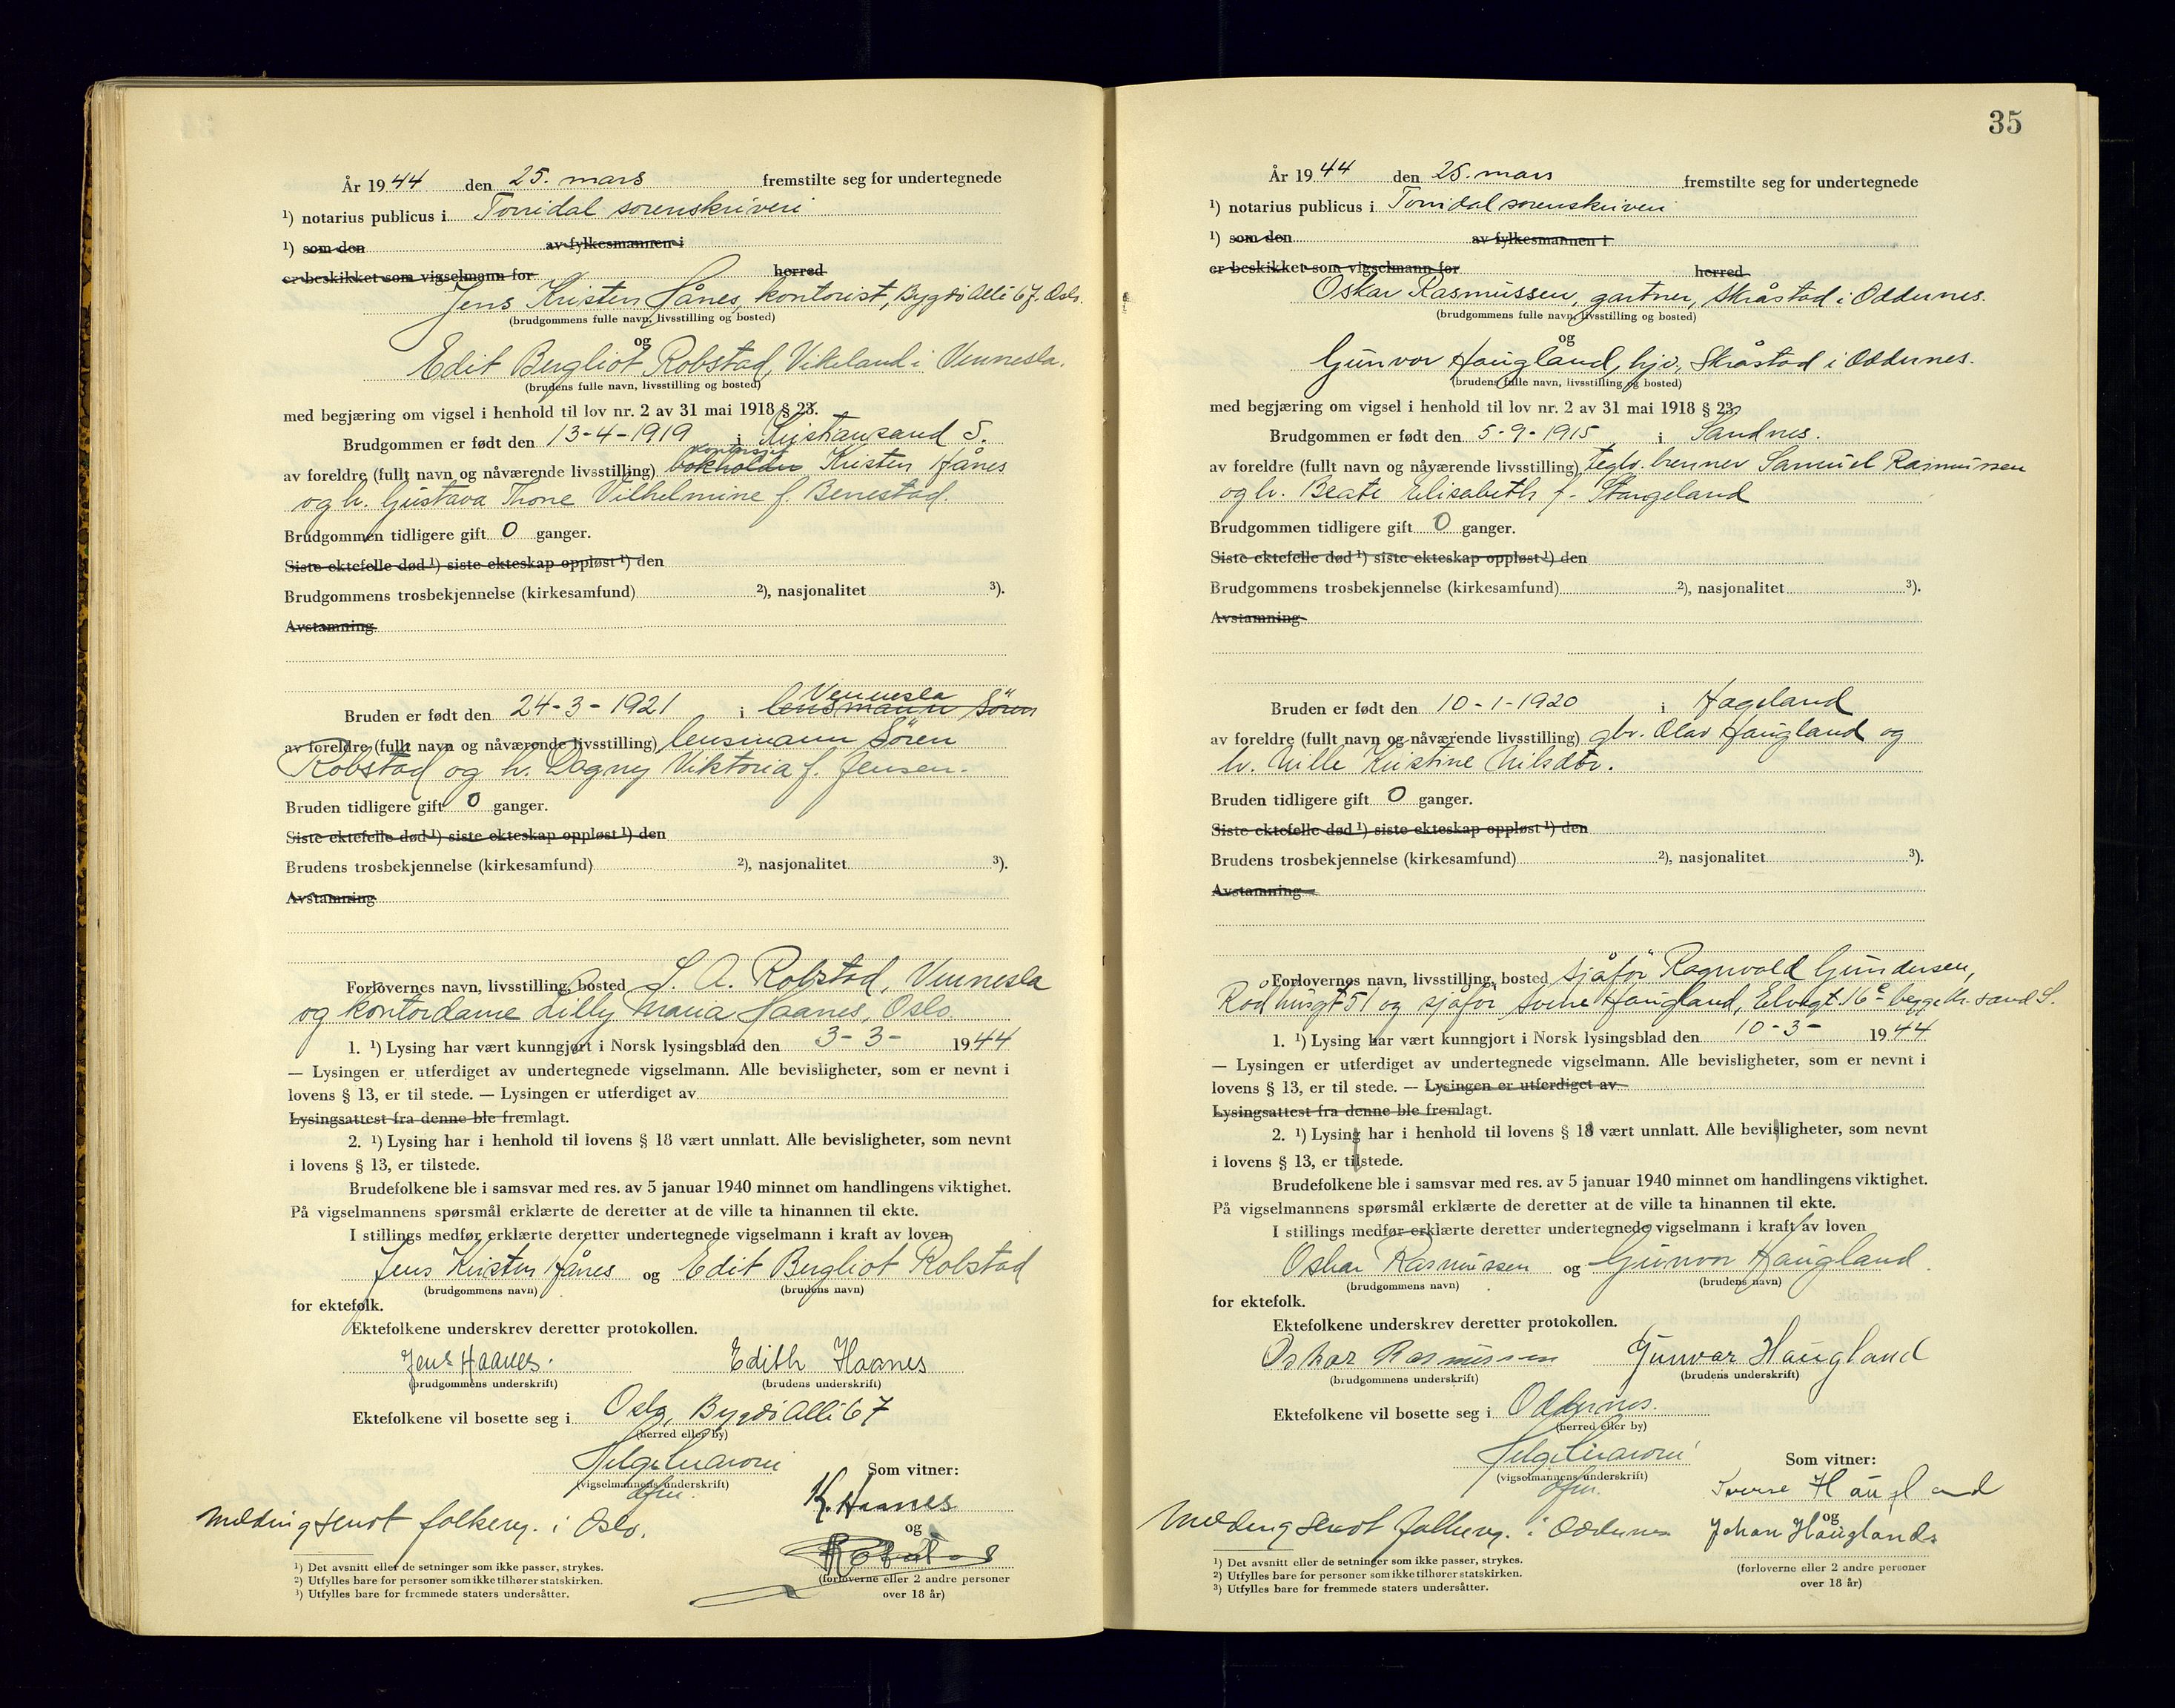 År 1944 den 25. mars fremstilte seg for undertegnede
¹) notarius publicus i Torridal sorenskriveri
¹) som den av fylkesmannen i
er beskikket som vigselmann for herred
Jens Kristen Hånes, kontorist, Bygdö Allé 67, Oslo.
(brudgommens fulle navn, livsstilling og bosted)
og
Edit Bergliot Robstad, Vikeland i Vennesla.
(brudens fulle navn, livsstilling og bosted)
med begjæring om vigsel i henhold til lov nr. 2 av 31 mai 1918 § 23.
Brudgommen er født den 13-4-1919 i Kristiansand S.
av foreldre (fullt navn og nåværende livsstilling) bokholder Kristen Hånes
og h. Gustava Thone Vilhelmine f. Benestad.
Brudgommen tidligere gift 0 ganger.
Siste ektefelle død ¹) siste ekteskap oppløst ¹) den
Brudgommens trosbekjennelse (kirkesamfund) ²), nasjonalitet ³).
Avstamning
Vennesla
Bruden er født den 24-3-1921 i lensmann Sören
av foreldre (fullt navn og nåværende livsstilling) lensmann Sören
Robstad og h. Dagny Viktoria f. Jensen.
Bruden tidligere gift 0 ganger.
Siste ektefelle død ¹) siste ekteskap oppløst ¹) den
Brudens trosbekjennelse (kirkesamfund) ²), nasjonalitet ³).
Avstamning
Forlovernes navn, livsstilling, bosted S. A. Robstad, Vennesla
og kontordame Lilly Maria Haanes, Oslo.
1. ¹) Lysing har vært kunngjort i Norsk lysingsblad den 3-3- 1944
— Lysingen er utferdiget av undertegnede vigselmann. Alle bevisligheter, som er nevnt i
lovens § 13, er til stede. — Lysingen er utferdiget av
Lysingsattest fra denne ble fremlagt.
2. ¹) Lysing har i henhold til lovens § 18 vært unnlatt. Alle bevisligheter, som nevnt
i lovens § 13, er tilstede.
Brudefolkene ble i samsvar med res. av 5 januar 1940 minnet om handlingens viktighet.
På vigselmannens spørsmål erklærte de deretter at de ville ta hinannen til ekte.
I stillings medfør erklærte deretter undertegnede vigselmann i kraft av loven
Jens Kristen Hånes og Edit Bergliot Robstad
(brudgommens navn) (brudens navn)
for ektefolk.
Ektefolkene underskrev deretter protokollen.
Jens Haanes. Edith Haanes
(brudgommens underskrift) (brudens underskrift)
Ektefolkene vil bosette seg i Oslo, Bygdö Allé 67
(herred eller by)
(vigselmannens underskrift)
Som vitner:
K. Haanes
og
Robstad
(forloverne eller 2 andre personer
over 18 år)
Melding sendt folkereg. i Oslo.
¹) Det avsnitt eller de setninger som ikke passer, strykes.
²) Utfylles bare for personer som ikke tilhører statskirken.
³) Utfylles bare for fremmede staters undersåtter.
35
År 1944 den 25. mars fremstilte seg for undertegnede
¹) notarius publicus i Torridal sorenskriveri
¹) som den av fylkesmannen i
er beskikket som vigselmann for herred
Oskar Rasmussen, gartner, Skråstad i Oddernes.
(brudgommens fulle navn, livsstilling og bosted)
og
Gunvor Haugland, hjv., Skråstad i Oddernes.
(brudens fulle navn, livsstilling og bosted)
med begjæring om vigsel i henhold til lov nr. 2 av 31 mai 1918 § 23.
Brudgommen er født den 5-9-1915 i Sandnes.
av foreldre (fullt navn og nåværende livsstilling) teglv. brenner Samuel Rasmussen
og h. Beate Elisabeth f. Stangeland
Brudgommen tidligere gift 0 ganger.
Siste ektefelle død ¹) siste ekteskap oppløst ¹) den
Brudgommens trosbekjennelse (kirkesamfund) ²), nasjonalitet ³).
Avstamning
Bruden er født den 10-1-1920 i Hægeland
av foreldre (fullt navn og nåværende livsstilling) gbr. Olav Haugland og
h. Nille Kristine Nilsdtr.
Bruden tidligere gift 0 ganger.
Siste ektefelle død ¹) siste ekteskap oppløst ¹) den
Brudens trosbekjennelse (kirkesamfund) ²), nasjonalitet ³).
Avstamning
Forlovernes navn, livsstilling, bosted sjåför Ragnvald Gundersen,
Rådhusgt 51 og sjåför Sverre Haugland, Elvegt. 16 c - begge Kr.sand S.
1. ¹) Lysing har vært kunngjort i Norsk lysingsblad den 10-3- 1944
— Lysingen er utferdiget av undertegnede vigselmann. Alle bevisligheter, som er nevnt i
lovens § 13, er til stede. — Lysingen er utferdiget av
Lysingsattest fra denne ble fremlagt.
2. ¹) Lysing har i henhold til lovens § 18 vært unnlatt. Alle bevisligheter, som nevnt
i lovens § 13, er tilstede.
Brudefolkene ble i samsvar med res. av 5 januar 1940 minnet om handlingens viktighet.
På vigselmannens spørsmål erklærte de deretter at de ville ta hinannen til ekte.
I stillings medfør erklærte deretter undertegnede vigselmann i kraft av loven
Oskar Rasmussen og Gunvor Haugland
(brudgommens navn) (brudens navn)
for ektefolk.
Ektefolkene underskrev deretter protokollen.
Oskar Rasmussen Gunvor Haugland
(brudgommens underskrift) (brudens underskrift)
Ektefolkene vil bosette seg i Oddernes.
(herred eller by)
(vigselmannens underskrift)
Som vitner:
Sverre Haugland
og
Johan Haugland
(forloverne eller 2 andre personer
over 18 år)
Melding sendt folkereg. i Oddernes
¹) Det avsnitt eller de setninger som ikke passer, strykes.
²) Utfylles bare for personer som ikke tilhører statskirken.
³) Utfylles bare for fremmede staters undersåtter.